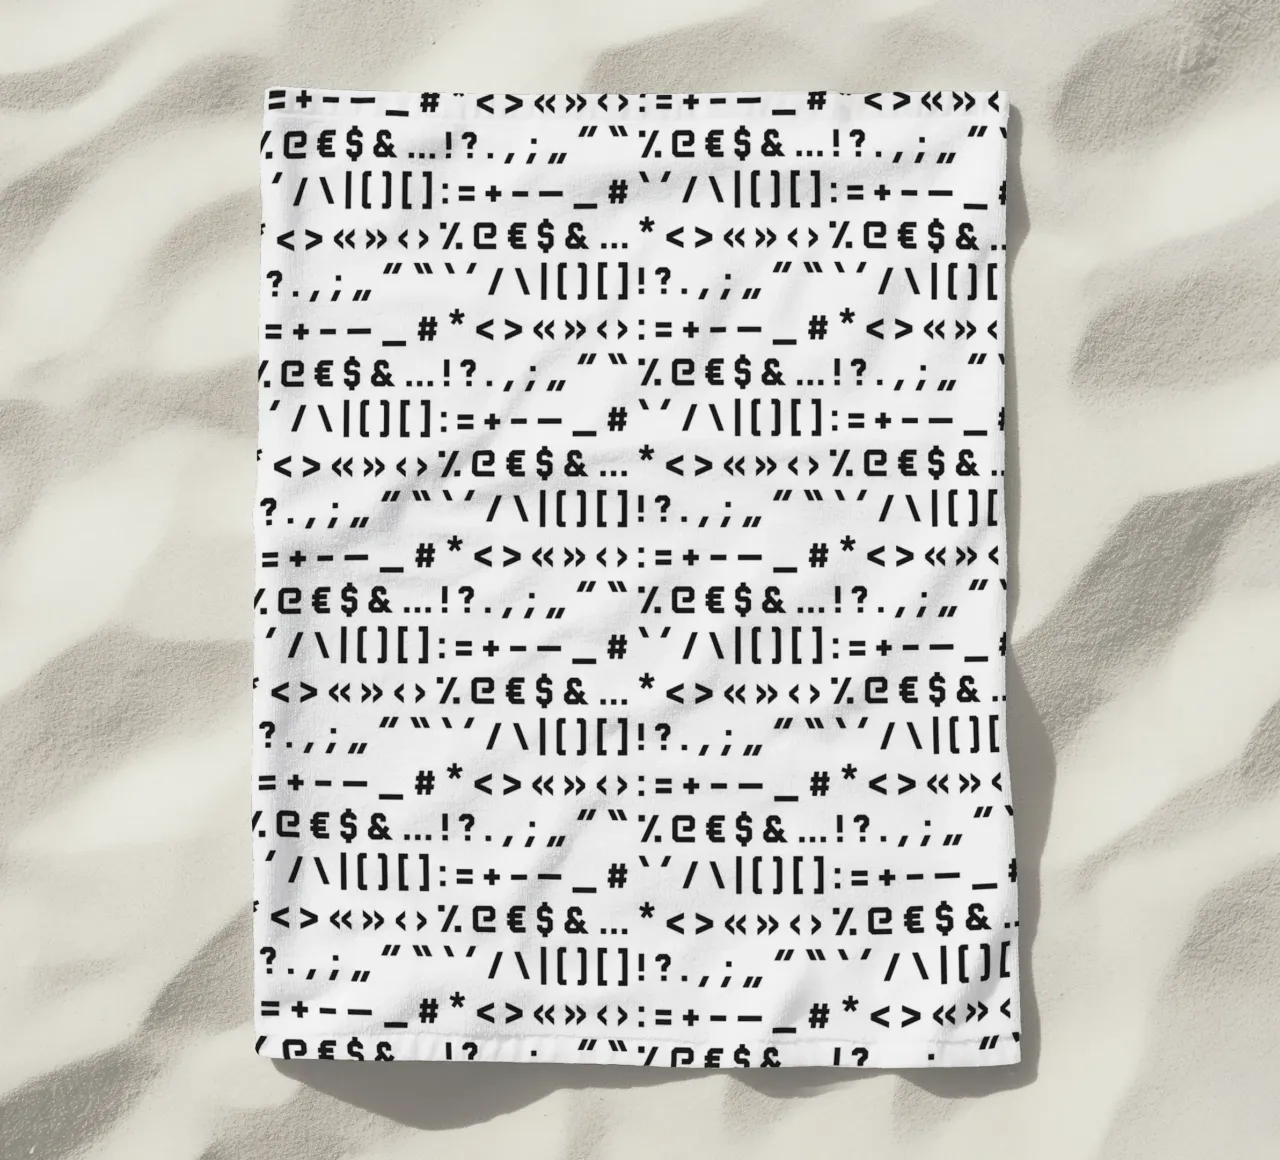 =+-–_#*<>«»‹›:=+-–_#*<>«»‹
٪@€$&…!?.,;„“‟٪@€$&…!?.,;„“‵
´/\|()[]:=+-–_#`´/\|()[]:=+-–_#
*<>«»‹›٪@€$&…*<>«»‹›٪@€$&…
?.,;„“‟`´/\|()[]!?.,;„“‟`´/\|()[
=+-–_#*<>«»‹›:=+-–_#*<>«»‹
%@€$&…!?.,;„“‟%@€$&…!?.,;„“`
´/\|()[]:=+-–_#`´/\|()[]:=+-–_#
*<>«»‹›%@€$&…*<>«»‹›%@€$&…
?.,;„“‟`´/\|()[]!?.,;„“‟`´/\|()[
=+-–_#*<>«»‹›:=+-–_#*<>«»‹
%@€$&…!?.,;„“‟%@€$&…!?.,;„“`
´/\|()[]:=+-–_#`´/\|()[]:=+-–_#
*<>«»‹›%@€$&…*<>«»‹›%@€$&…
?.,;„“‟`´/\|()[]!?.,;„“‟`´/\|()[
=+-–_#*<>«»‹›:=+-–_#*<>«»‹
%@€$&…!?.,;„“‟%@€$&…!?.,;„“`
´/\|()[]:=+-–_#`´/\|()[]:=+-–_#
*<>«»‹›%@€$&…*<>«»‹›%@€$&…
?.,;„“‟`´/\|()[]!?.,;„“‟`´/\|()[
=+-–_#*<>«»‹›:=+-–_#*<>«»‹
@€$& !? ; “‟%@€$& !? ; “